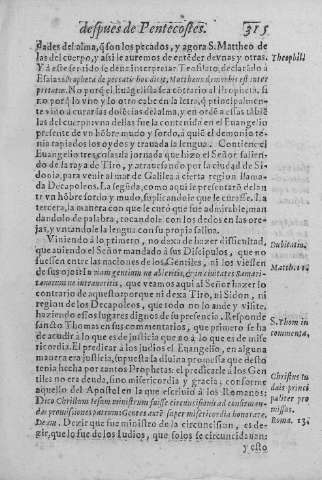 despues de Pentecostes. 315
dades del alma, q̃ son los pecados, y agora S. Mattheo de
las del cuerpo, y assi le auremos de entẽder de vnas y otras. Theophili
Y a este sentido se deue interpretar Teofilato, declarãdo à
Esaias: Propheta de peccatis hoc dicit, Matthæus de morbis est inter
pretatus. No porq̃ el Euangelista sea cõtrario al Propheta, si
no porq̃ lo vno y lo otro cabe en la letra, q̃ principalmen-
te vino à curar las dolẽcias del alma, y en ordẽ a essas tãbiẽ
las del cuerpo: vna dellas fue la contenida en el Euangelio
presente de vn hõbre mudo y sordo, à quiẽ el demonio te-
nia tapiados los oydos y trauada la lengua. Contiene el
Euangelio tres cosas: la jornada que hizo el Señor salien-
do de tierra de Tiro, y atrauessando por la ciudad de Si-
donia, para venir al mar de Galilea à cierta region llama-
da Decapoleos. La segũda, como aqui le presentarõ delan
te vn hõbre sordo y mudo, suplicandole que le curasse. La
tercera, la manera con que le curò que fue admirable, man
dandolo de palabra, tocandole con los dedos en las ore-
jas, y vntandole la lengua con su propia saliua.
Viniendo à lo primero, no dexa de hazer dificultad, Dubitatiu.
que auiendo el Señor mandado à sus Discipulos, que no
fuessen entre las naciones de los Gentiles, ni los viessen Matth. 10.
de sus ojos: In viam gentium ne abieritis, & in ciuitates Samari-
tanorum ne intraueritis, que veamos aqui al Señor hazer lo
contrario de aquesto: porque ni de ca Tiro, ni Sidon, ni
region de los Decapoleos, que todo no lo ande y visite,
haziendo essos lugares dignos de su presencia. Responde
sancto Thomas en sus commentarios, que primero se ha S. Thom in
de acudir à lo que es de justicia que no à lo que es de mise commenta.
ricordia. El predicar à los Iudios el Euangelio, en alguna
manera era justicia, supuesta la diuina promessa que desto
tenia hecha por tantos Prophetas: el predicarle à los Gen Christus Iu
tiles no era deuda, sino misericordia y gracia; conforme dæis princi
aquello del Apostol en la que escriuiò à los Romanos: paliter pro
Dico Christum Iesum ministrum fuisse circuncisionis ad confirman- missus.
das promissiones patrum: Gentes autẽ super misericordia honorare Roma. 15.
Deum. Dezir que fue ministro de la circuncision, es de-
zir, que lo fue de los Iudios, que solos se circuncidauan:
y esto